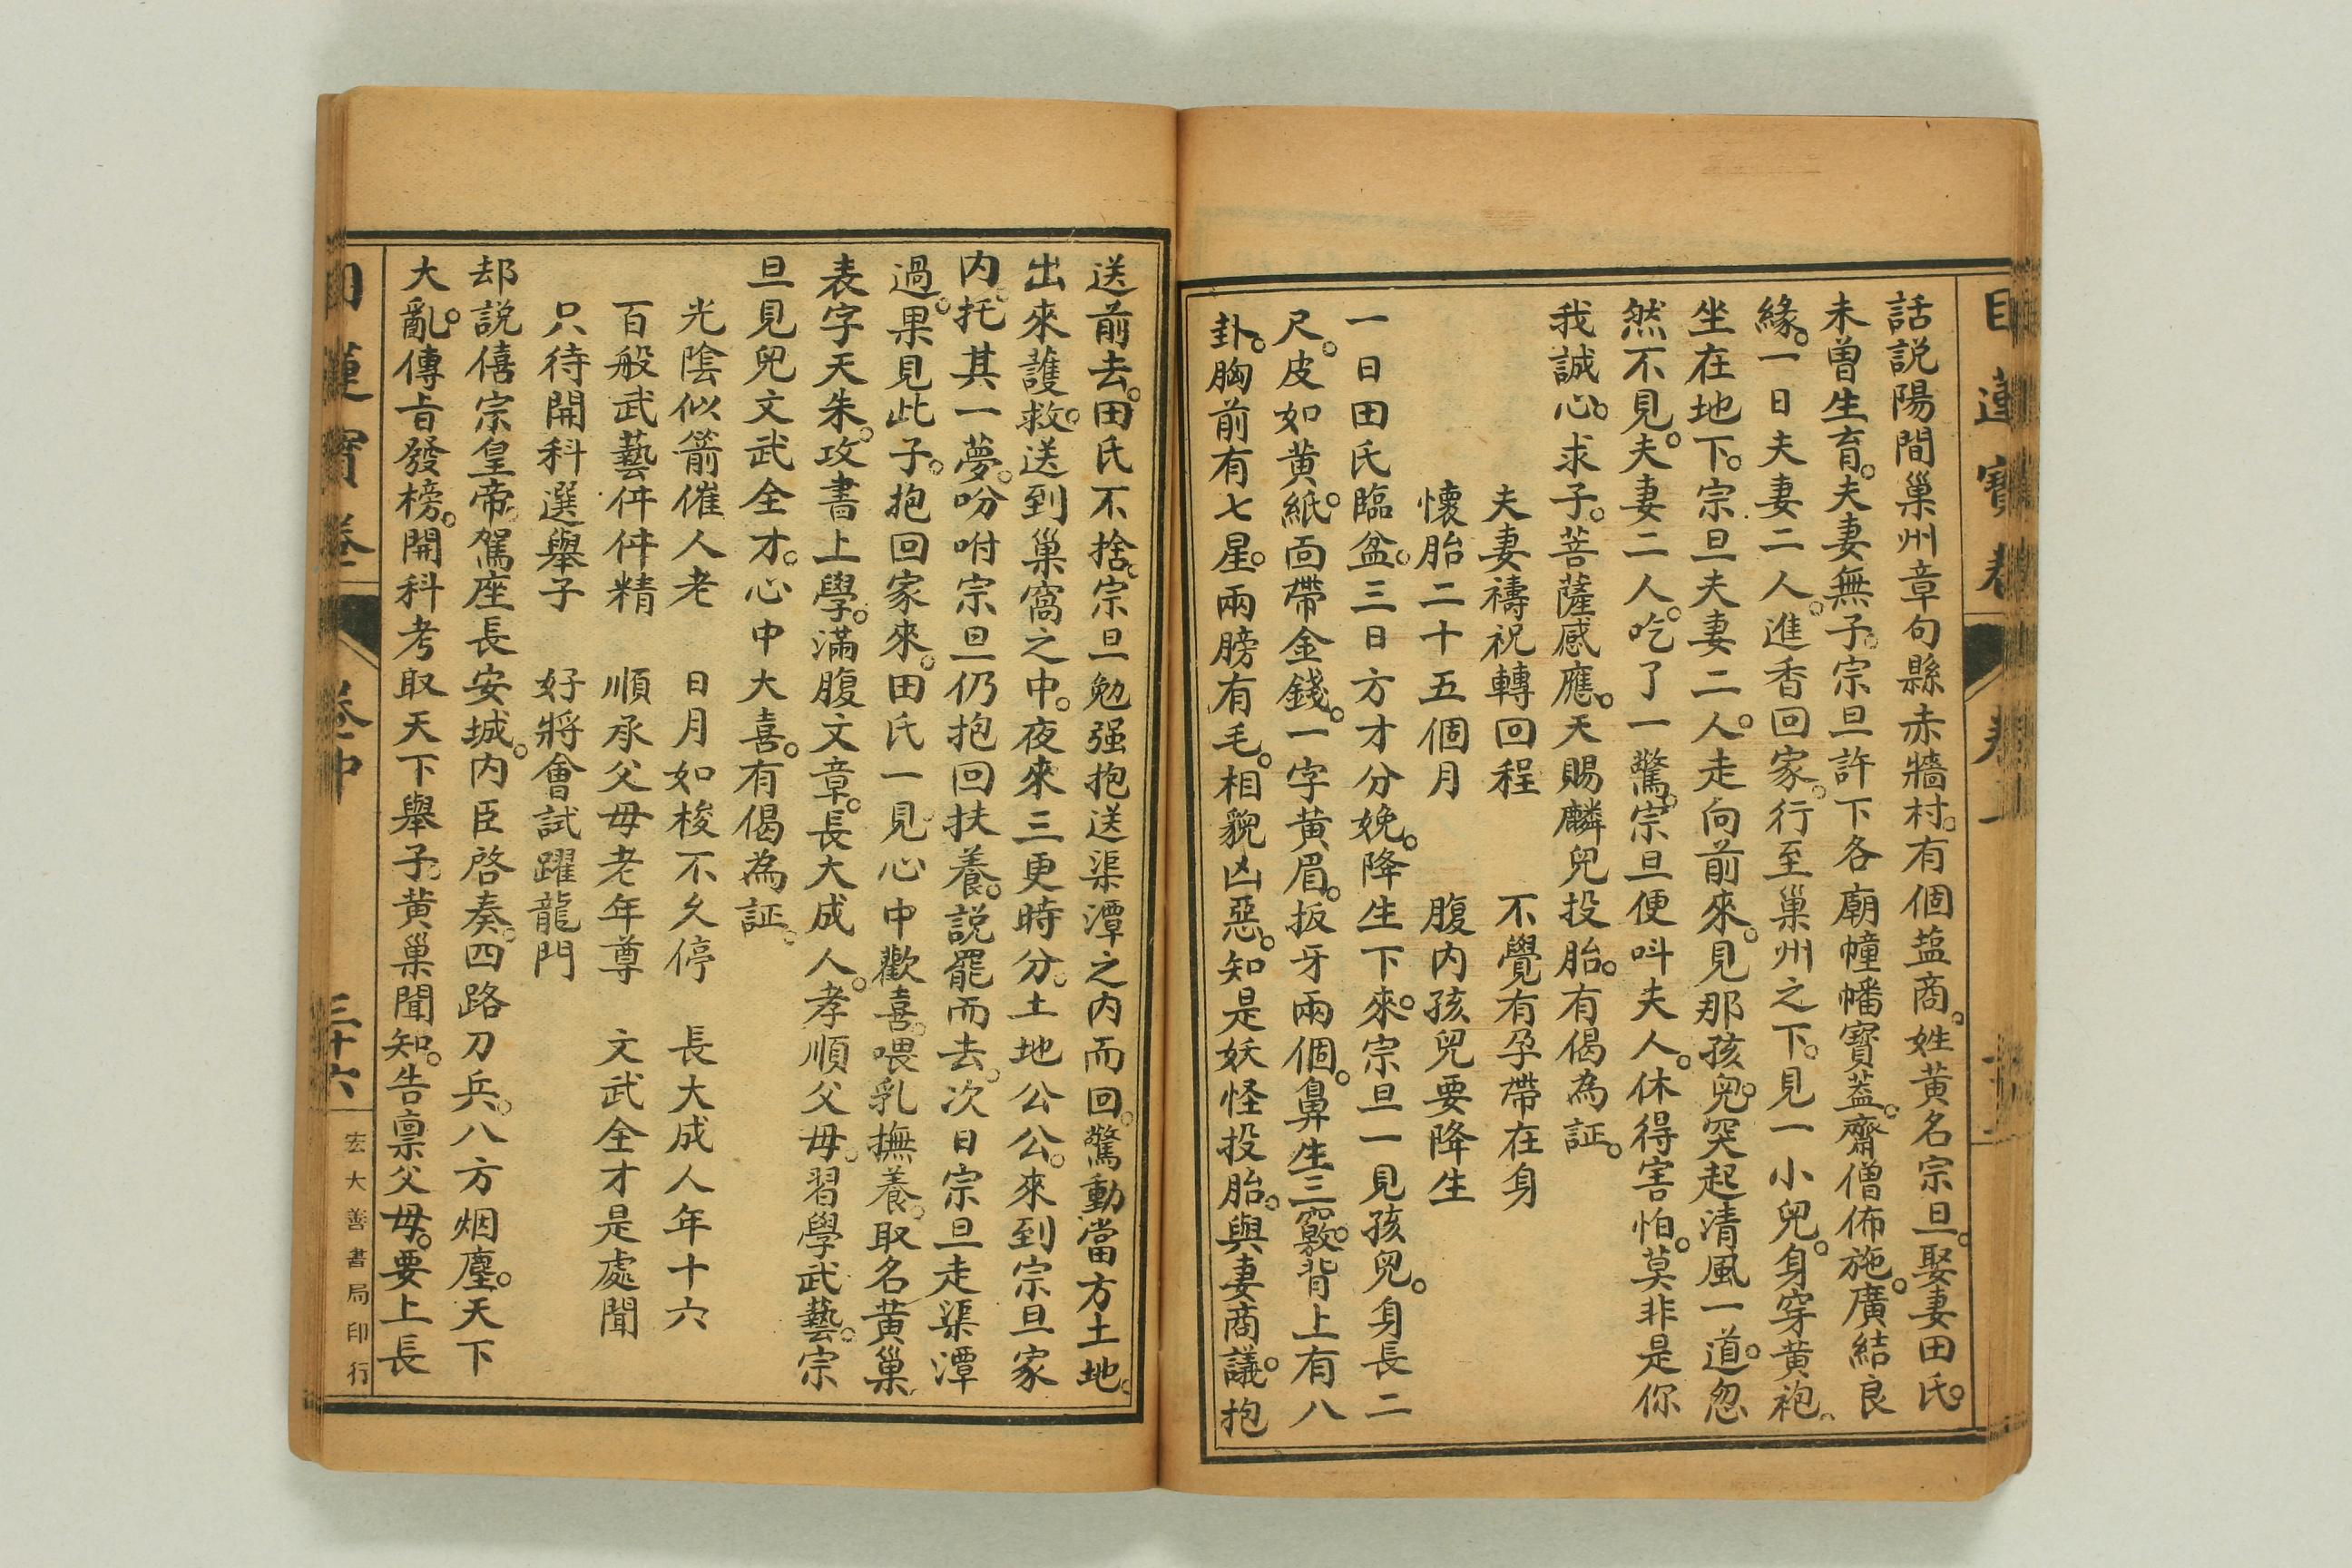 話説陽間巢州章句縣赤牆村。有個塩商。姓黄名宗旦。娶妻田氏。
未曾生育。夫妻無子。宗旦許下各廟幢幡寶蓋。齋僧佈施。廣結良
緣。一日夫妻二人。進香回家。行至巢州之下。見一小兒。身穿黄袍。
坐在地下。宗旦夫妻二人。走向前來。見那孩兒。突起清風一道。忽
然不見。夫妻二人。吃了一驚。宗旦便呌夫人。休得害怕。莫非是你
我誠心。求子。菩薩感應。天賜麟兒投胎。有偈為証。
夫妻禱祝轉回程　不覺有孕帶在身
懷胎二十五個月　腹内孩兒要降生
一日田氏臨盆。三日方才分娩。降生下來。宗旦一見孩兒。身長二
尺。皮如黄紙。面帶金錢。一字黄眉。扳牙兩個。鼻生三竅。背上有八
卦。胸前有七星。兩膀有毛。相貌凶惡。知是妖怪投胎。與妻商議。抱
送前去。田氏不捨。宗旦勉强抱送渠潭之内而回。驚動當方土地。
出來護救。送到巢窩之中。夜來三更時分。土地公公。來到宗旦家
内。托其一夢。吩咐宗旦仍抱回扶養。説罷而去。次日宗旦走渠潭
過。果見此子。抱回家來。田氏一見。心中歡喜。喂乳撫養。取名黄巢。
表字天朱。攻書上學。滿腹文章。長大成人。孝順父毋。習學武藝。宗
旦見兒文武全才。心中大喜。有偈為証。
光陰似箭催人老　日月如梭不久停　長大成人年十六
百般武藝件件精　順承父毋老年尊　文武全才是處聞
只待開科選舉子　好將會試躍龍門
却説僖宗皇帝。駕座長安城。内臣啓奏。四路刀兵。八方烟塵。天下
大亂。傳旨發榜。開科考取天下舉子。黄巢聞知。告禀父毋。要上長
目連寶卷　卷中　三十六　宏大善書局印行